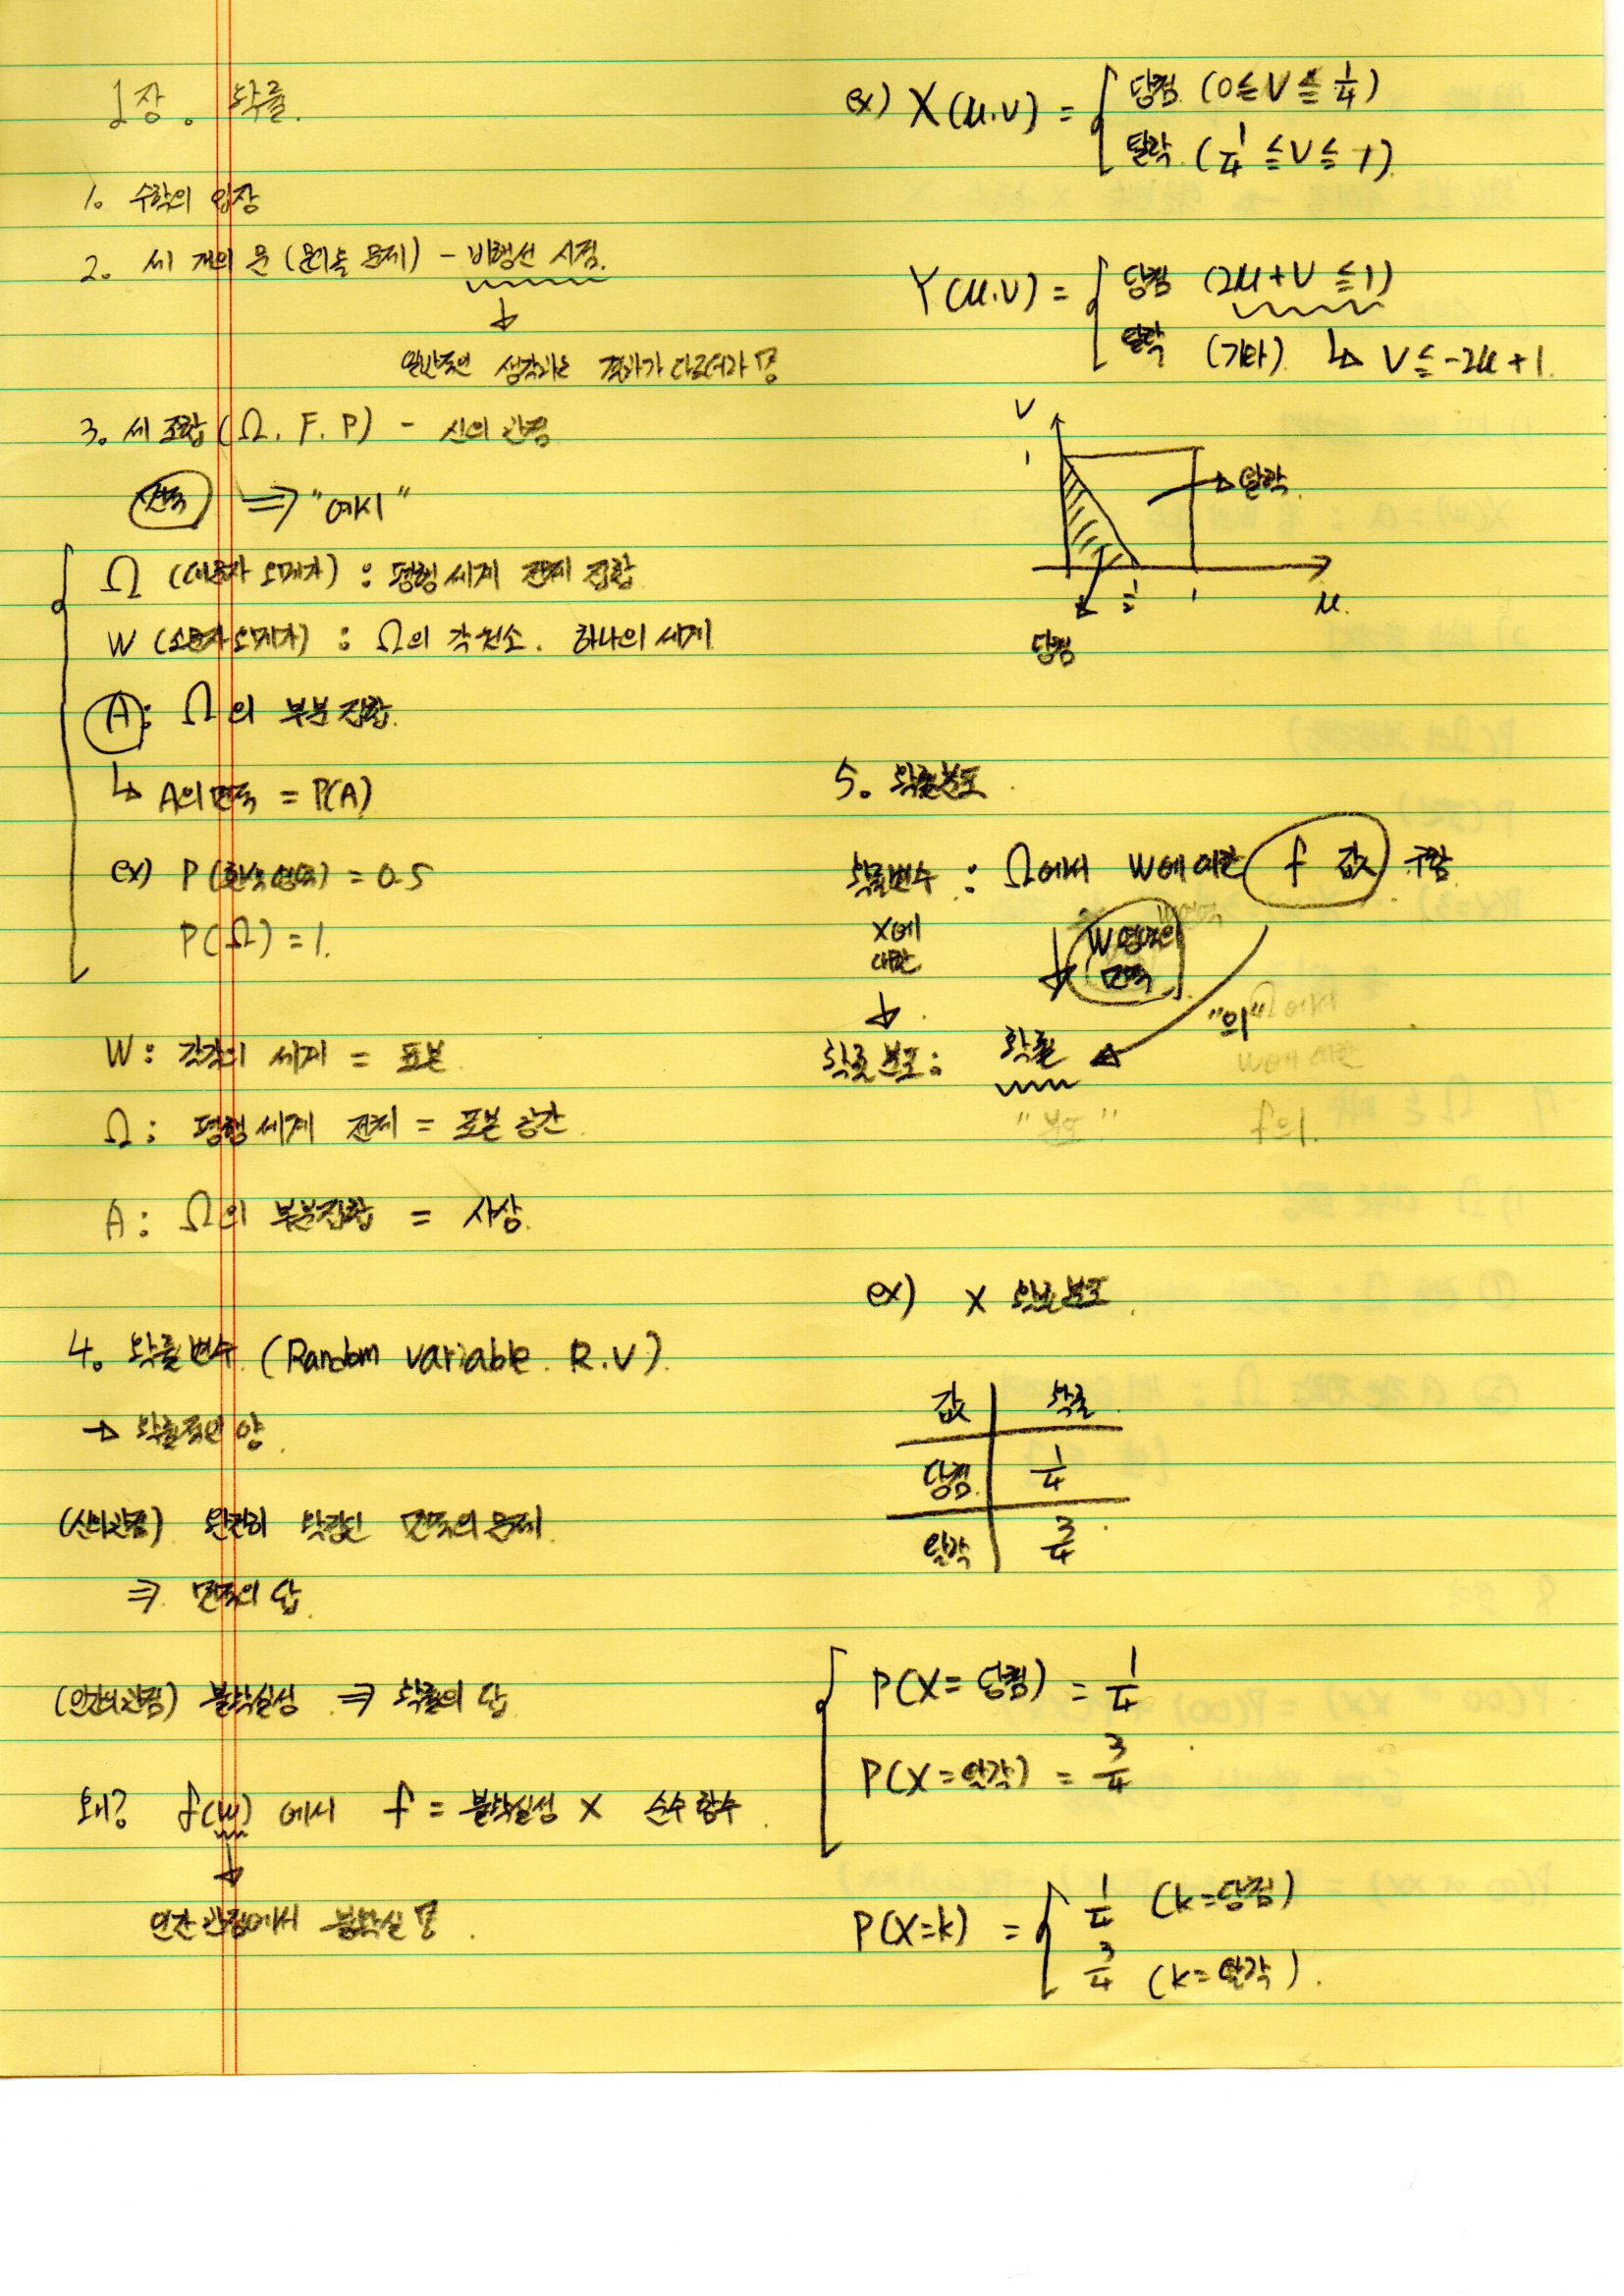 1장. 확률.
1. 수학의 입장
2. 세 개의 문 (몬티홀 문제) - 비행선 시점.
↓
일반적인 생각과는 결과가 다르더라
3. 세 조합 (Ω. F. P) - 신의 관점
면적 ⇒ "예시"
Ω (대문자 오메가) : 평행세계 전체 집합
W (소문자 오메가) : Ω의 각 원소. 하나의 세계
A : Ω의 부분집합.
↳ A의 면적 = P(A)
ex) P(흰색영역) = 0.5
P(Ω) = 1.
W : 각각의 세계 = 표본
Ω : 평행세계 전체 = 표본공간
A : Ω의 부분집합 = 사상.
4. 확률변수 (Random variable. R.V).
→ 확률적인 양
(신의관점) 완전히 확정된 면적의 문제
⇒ 면적의 답
(인간의관점) 불확실성 ⇒ 확률의 답
왜? f(w) 에서 f = 불확실성 X 순수 함수
↓
인간 관점에서 불확실
ex) X(u.v) = { 당첨 (0 ≦ V ≦ 1/4)
탈락 (1/4 ≦ V ≦ 1)
Y(u.v) = { 당첨 (2u+V ≦ 1)
탈락 (기타). ↳ V ≦ -2u+1.
V
1
→ 탈락.
1/2 1 u.
당첨
5. 확률분포
확률변수 : Ω에서 W에 의한 f 값 구함
X에
대한
↓
W 영역의
면적
"의"
확률분포 : 확률
"분포" f의
ex) X 확률분포
값 확률
당첨 1/4
탈락 3/4
P(X=당첨) = 1/4
P(X=탈락) = 3/4
P(X=k) = { 1/4 (k=당첨)
3/4 (k=탈락).